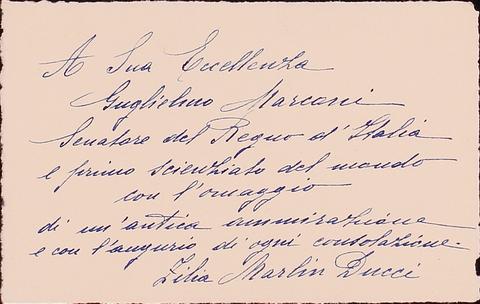 A Sua Eccellenza
Guglielmo Marconi
Senatore del Regno d'Italia
e primo scienziato del mondo
con l'omaggio
di un'antica ammirazione
e con l'augurio di ogni consolazione.
Zilia Marlin Ducci